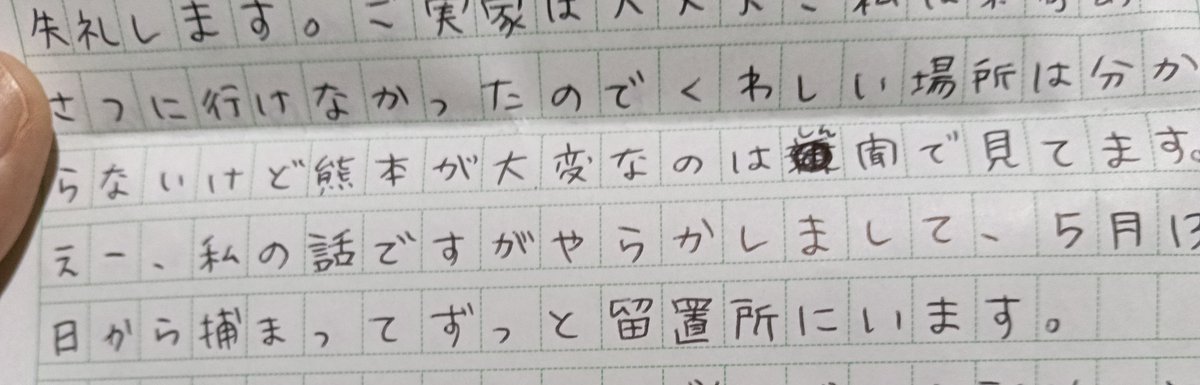 失礼します。ご実家は
さつに行けなかったのでくわしい場所は分か
らないけど熊本が大変なのはしん聞で見てます。
えー、私の話ですがやらかしまして、5月13
日から捕まってずっと留置所にいます。